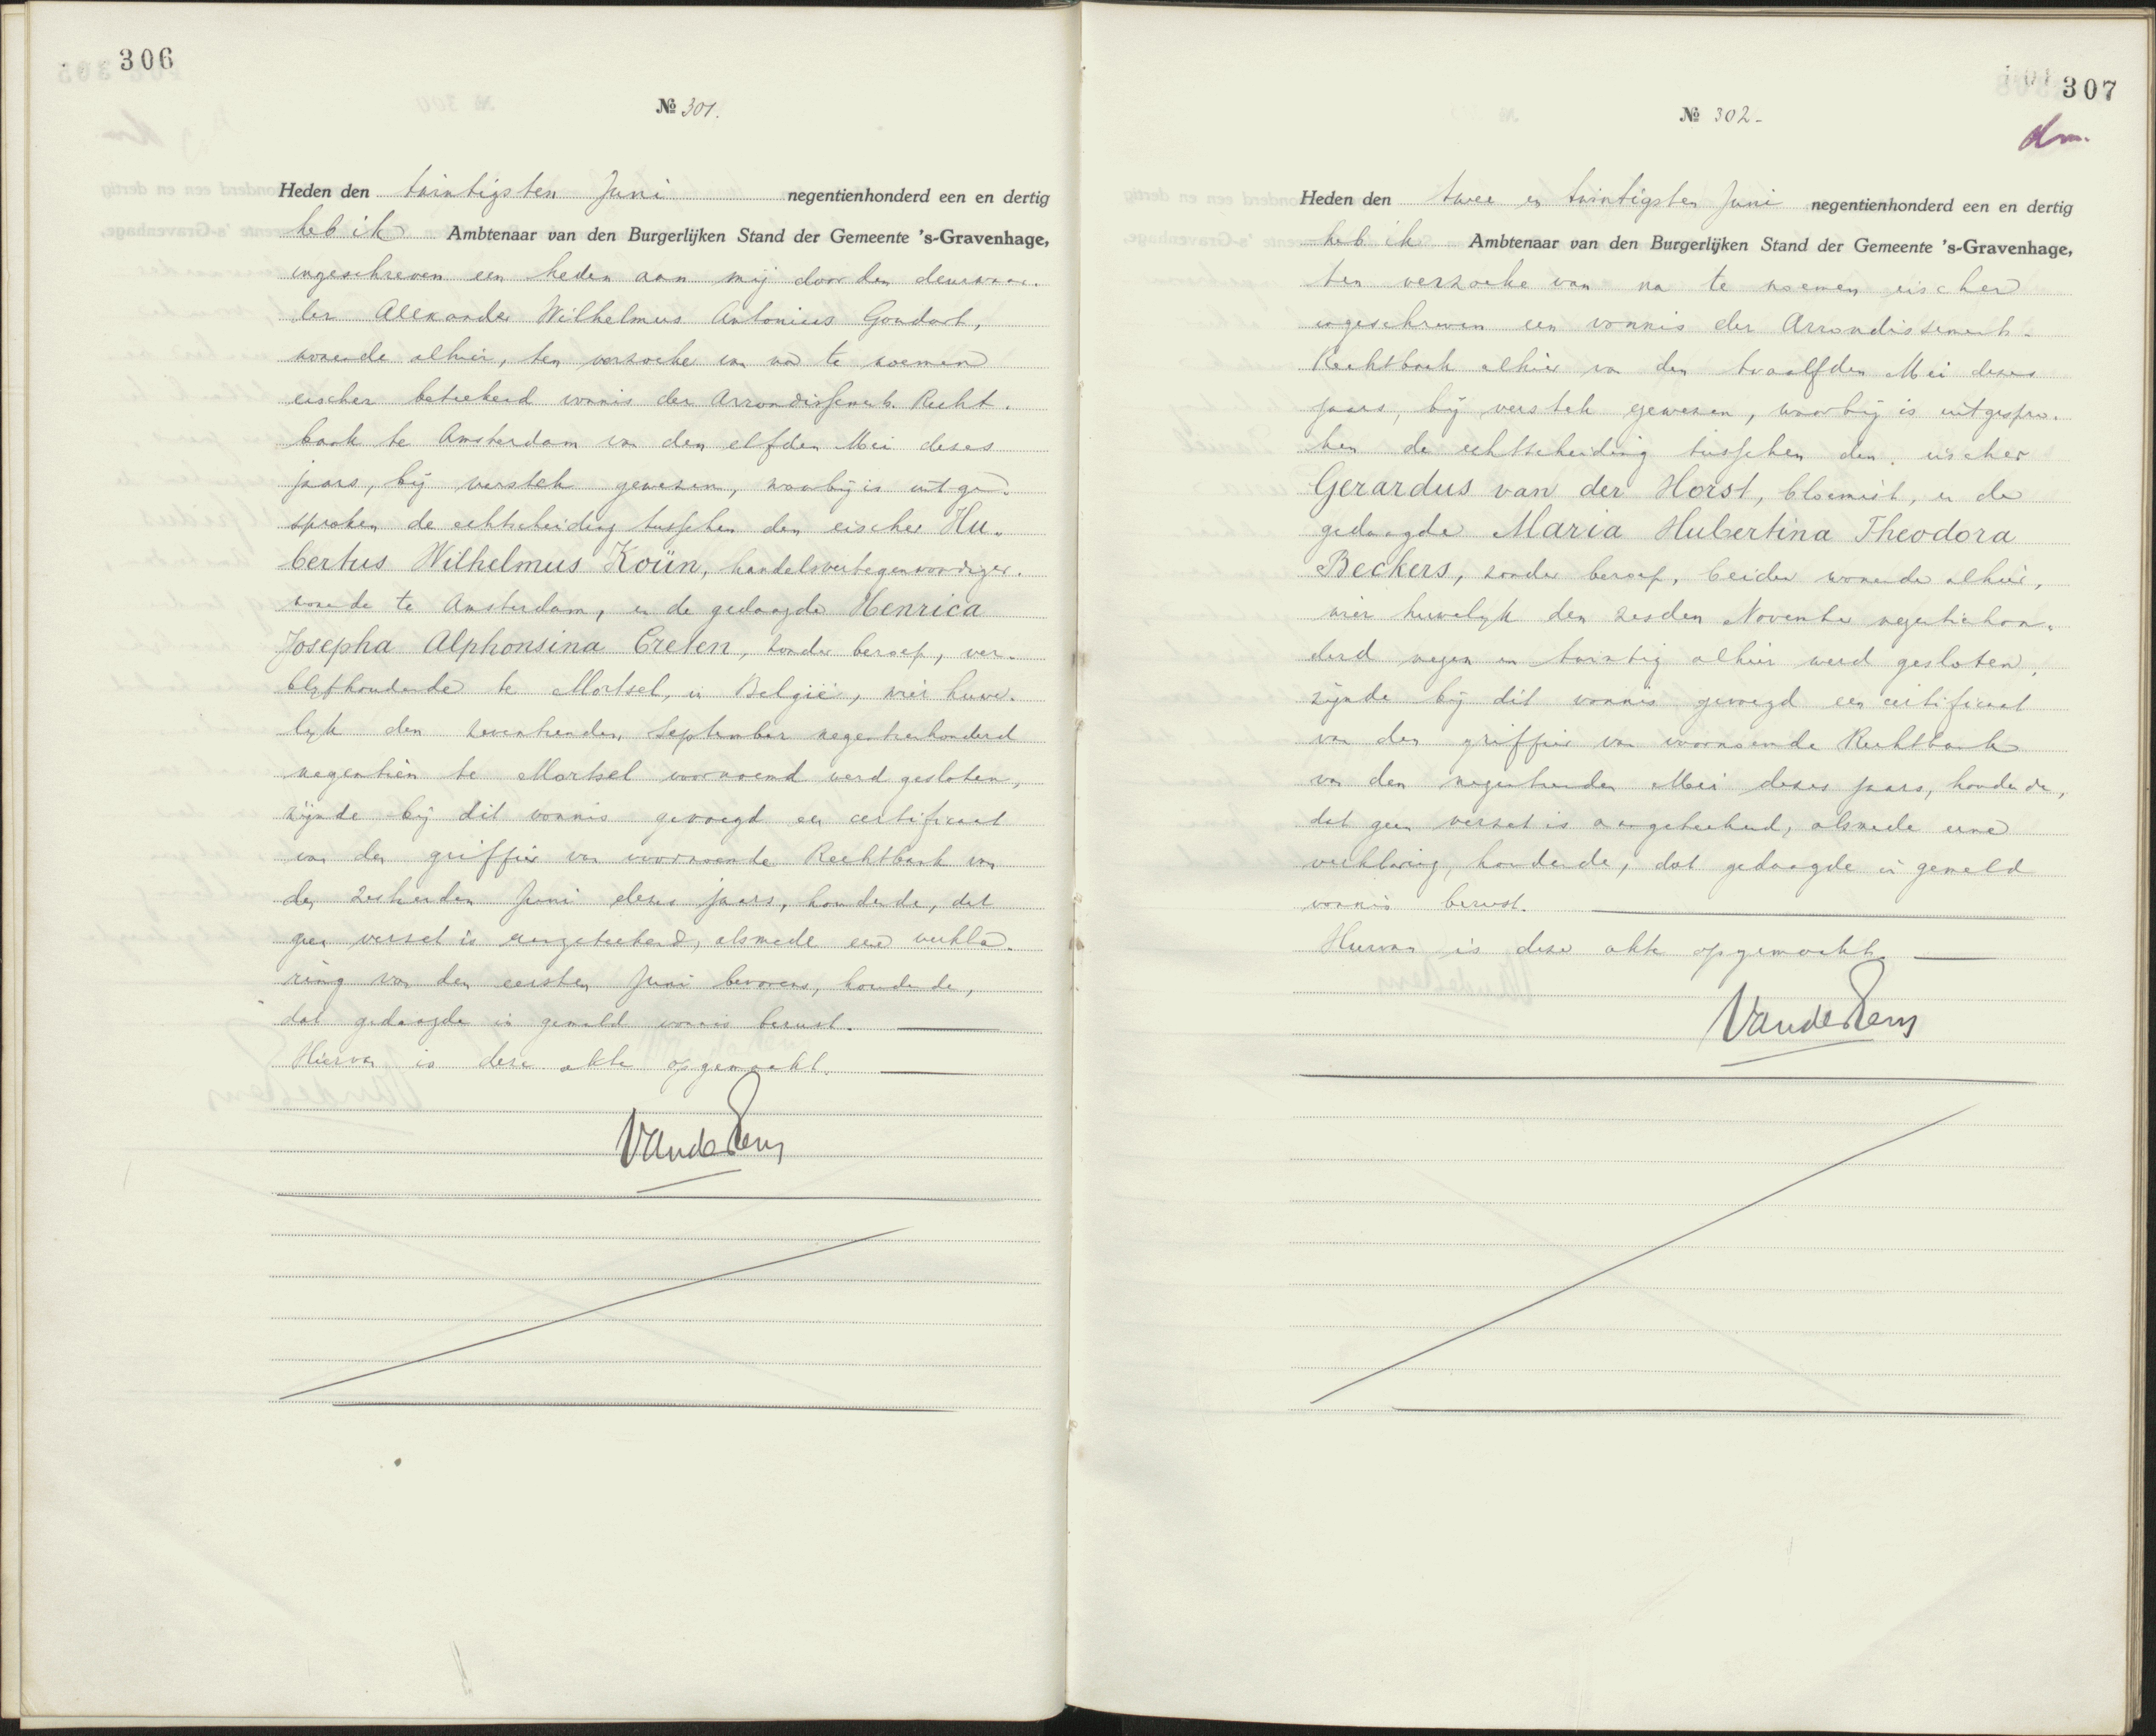 306
№ 301.
Heden den twintigsten Juni negentienhonderd een en dertig
heb ik Ambtenaar van den Burgerlijken Stand der Gemeente 's-Gravenhage,
ingeschreven een heden aan mij door den deurwaar-
der Alexander Wilhelmus Antonius Goudart,
wonende alhier, ten verzoeke van na te noemen
eischer beteekend vonnis der Arrondissements Recht-
bank te Amsterdam van den elfden Mei dezes
jaars, bij verstek gewezen, waarbij is uitge-
sproken de echtscheiding tusschen den eischer Hu-
bertus Wilhelmus Koün, handelsvertegenwoordiger,
wonende te Amsterdam, en de gedaagde Henrica
Josepha Alphonsina Creten, zonder beroep, ver-
blijfhoudende te Mortsel, in België, wier huwe-
lijk den zeventienden September negentienhonderd
negentien te Mortsel voornoemd werd gesloten,
zijnde bij dit vonnis gevoegd een certificaat
van den griffier van voornoemde Rechtbank van
den zestienden Juni dezes jaars, houdende, dat
geen verzet is aangeteekend, alsmede eene verkla-
ring van den eersten Juni bevorens, houdende,
dat gedaagde in gemeld vonnis berust.
Hiervan is deze akte opgemaakt.
307
№ 302-
dm.
Heden den twee en twintigsten Juni negentienhonderd een en dertig
heb ik Ambtenaar van den Burgerlijken Stand der Gemeente 's-Gravenhage,
ten verzoeke van na te noemen eischer
ingeschreven een vonnis der Arrondissements-
Rechtbank alhier van den twaalfden Mei dezes
jaars, bij verstek gewezen, waarbij is uitgespro-
ken de echtscheiding tusschen den eischer
Gerardus van der Horst, bloemist, en de
gedaagde Maria Hubertina Theodora
Beckers, zonder beroep, beiden wonende alhier,
wier huwelijk den zesden November negentienhon-
derd negen en twintig alhier werd gesloten,
zijnde bij dit vonnis gevoegd een certificaat
van den griffier van voornoemde Rechtbank
van den negentienden Mei dezes jaars, houdende,
dat geen verzet is aangeteekend, alsmede eene
verklaring, houdende, dat gedaagde in gemeld
vonnis berust.
Hiervan is deze akte opgemaakt.